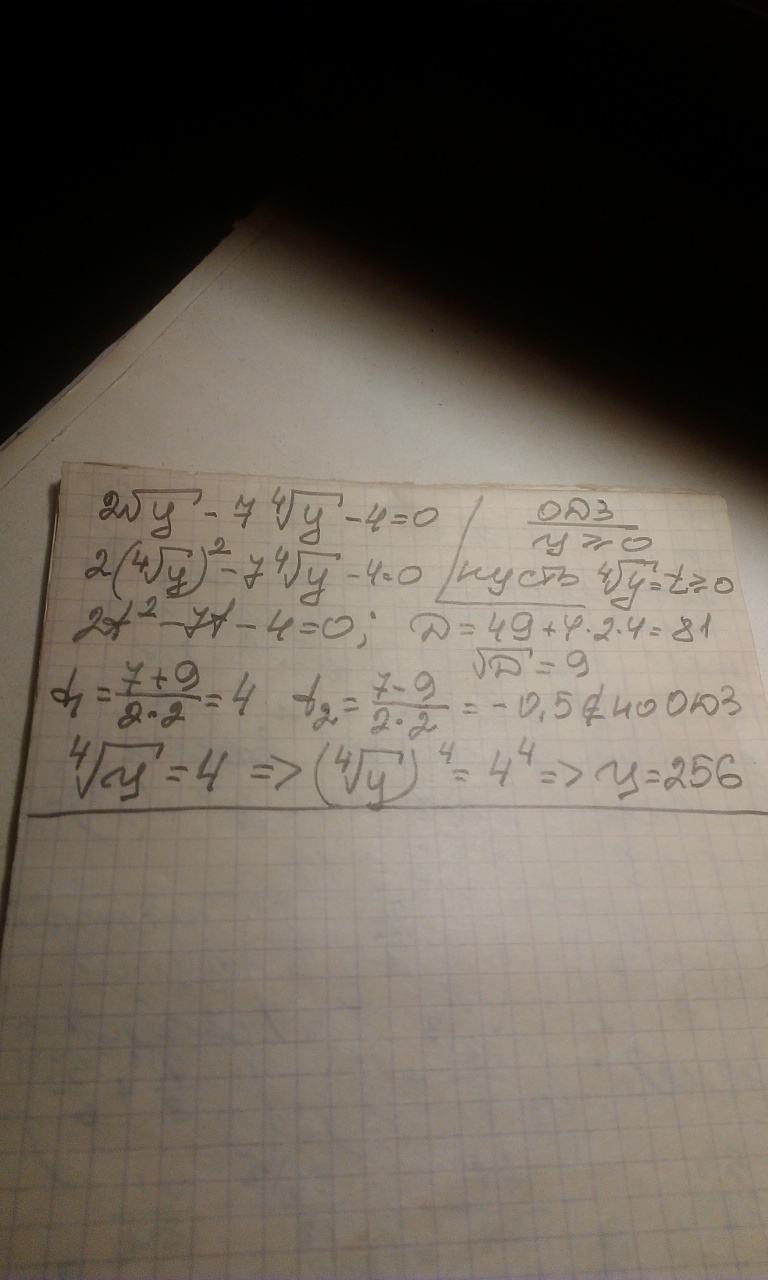 2√y - 7 ∜y - 4 = 0
ОДЗ
y ≥ 0
2(∜y)² - 7 ∜y - 4 = 0 пусть ∜y = t ≥ 0
2t² - 7t - 4 = 0; D = 49 + 4·2·4 = 81
√D = 9
t₁ = (7+9)/(2·2) = 4 t₂ = (7-9)/(2·2) = -0,5 ∉ по ОДЗ
∜y = 4 => (∜y)⁴ = 4⁴ => y = 256